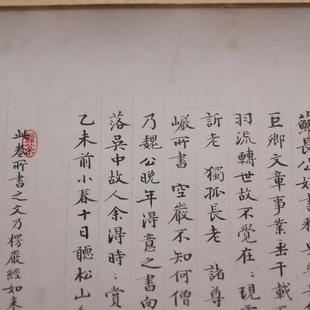 蘇長公好書
巨卿文章事業垂千載
羽流轉世故不覺在〻現
訢老 獨孤長老 諸尊
巘所書 空巖不知何僧
乃魏公晚年得意之書向
落吳中故人余得時〻賞
乙未前小春十日聽松山
此卷所書之文乃楞嚴經如來